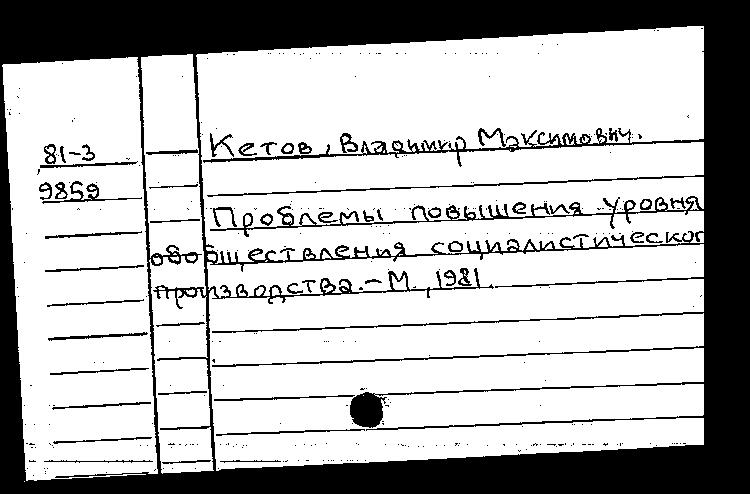 81-3
Кетов, Владимир Максимович.
9859
Проблемы повышения уровня
обобществления социалистическог
производства. - М., 1981.